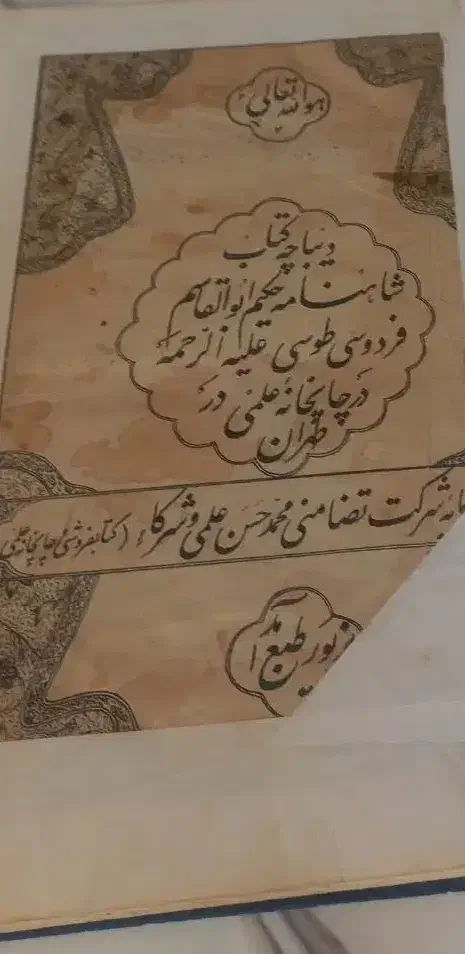 هوالله تعالی
دیباچه کتاب
شاهنامه حکیم ابوالقاسم
فردوسی طوسی علیه الرحمه
در چاپخانهٔ علمی در
طهران
شرکت تضامنی محمد حسن علمی و شرکاء (کتابفروشی و چاپخانه علمی
زیور طبع